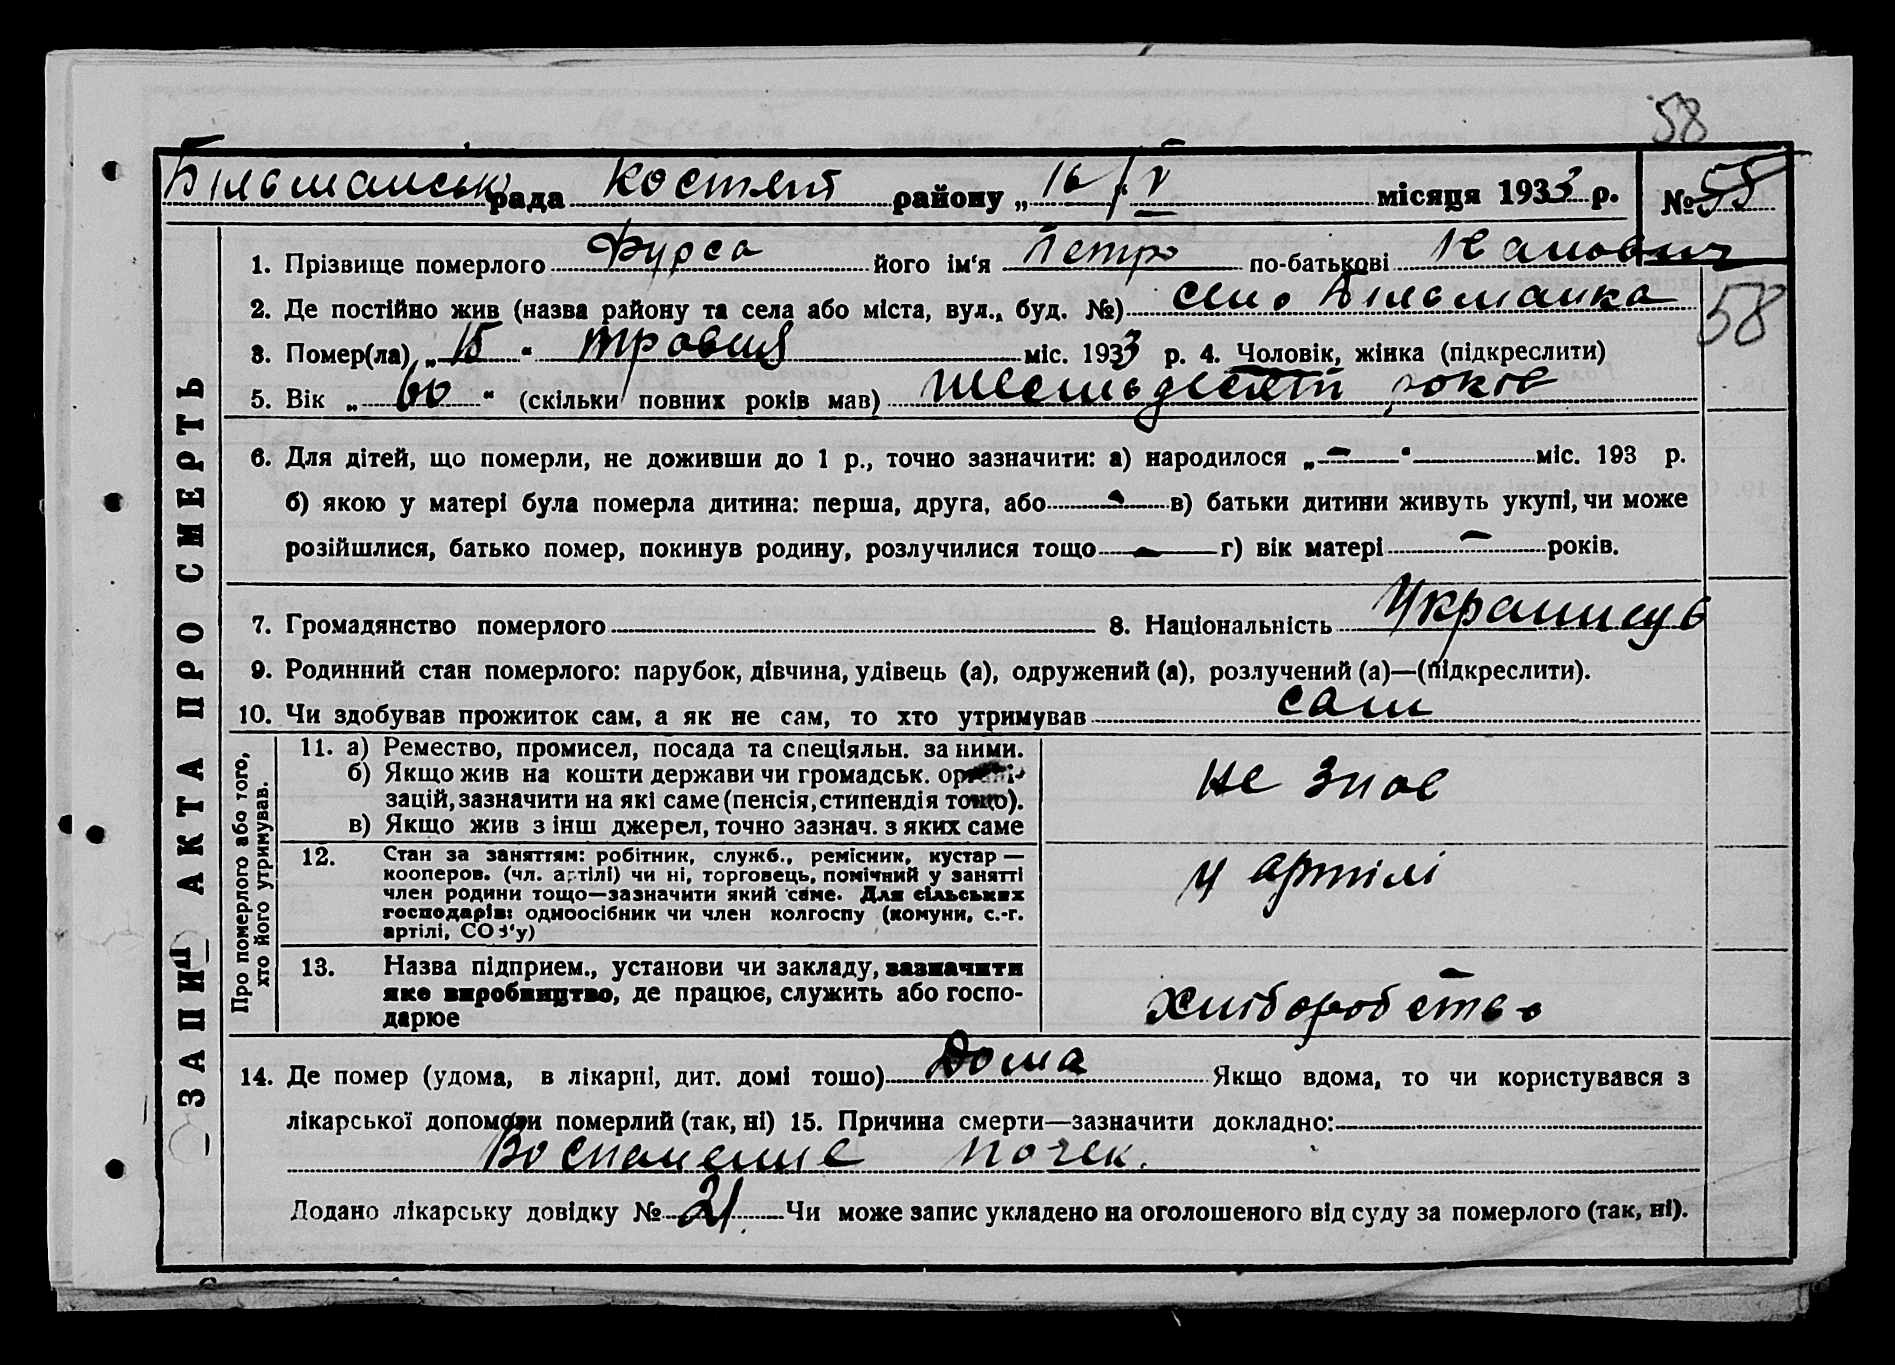 58
Більманськ рада Костянт району „16/V місяця 1933 р. № 55
1. Прізвище померлого Фурса його ім'я Петро по-батькові
58
2. Де постійно жив (назва району та села або міста, вул., буд. №) село Більманка
3. Помер(ла) „15“ травня міс. 1933 р. 4. Чоловік, жінка (підкреслити)
5. Вік „60“ (скільки повних років мав) шесьдесят років
6. Для дітей, що померли, не доживши до 1 р., точно зазначити: а) народилося „—“ міс. 193 р.
б) якою у матері була померла дитина: перша, друга, або — в) батьки дитини живуть укупі, чи може
розійшлися, батько помер, покинув родину, розлучилися тощо — г) вік матері — років.
7. Громадянство померлого 8. Національність Украинець
9. Родинний стан померлого: парубок, дівчина, удівець (а), одружений (а), розлучений (а)—(підкреслити).
10. Чи здобував прожиток сам, а як не сам, то хто утримував сам
11. а) Ремество, промисел, посада та спеціяльн. за ними.
б) Якщо жив на кошти держави чи громадськ. органі-
зацій, зазначити на які саме (пенсія, стипендія тощо).
в) Якщо жив з інш джерел, точно зазнач. з яких саме
не знає
12. Стан за заняттям: робітник, служб., ремісник, кустар —
кооперов. (чл. артілі) чи ні, торговець, помічний у занятті
член родини тощо—зазначити який саме. Для сільських
господарів: одноосібник чи член колгоспу (комуни, с.-г.
артілі, СОЗ'у)
у артілі
13. Назва підприєм., установи чи закладу, зазначити
яке виробництво, де працює, служить або госпо-
дарює
хліборобство
14. Де помер (удома, в лікарні, дит. домі тощо) Дома Якщо вдома, то чи користувався з
лікарської допомоги померлий (так, ні) 15. Причина смерти—зазначити докладно:
Воспаление почек.
Додано лікарську довідку № 21 Чи може запис укладено на оголошеного від суду за померлого (так, ні).
ЗАПИС АКТА ПРО СМЕРТЬ
Про померлого або того,
хто його утримував.